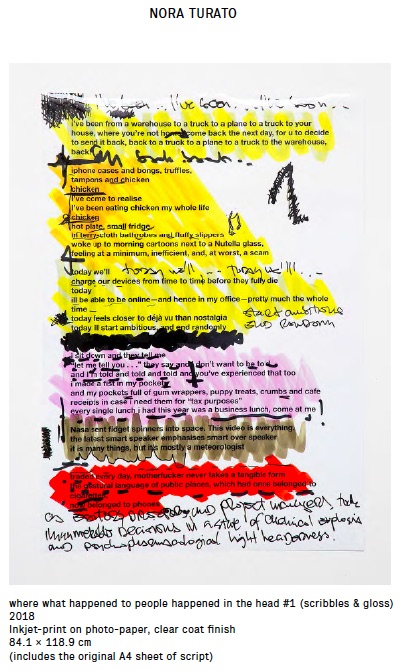 NORA TURATO
I've been from a warehouse to a truck to a plane to a truck to your
house, where you're not home, come back the next day, for u to decide
to send it back, back to a truck to a plane to a truck to the warehouse,
back
iphone cases and bongs, truffles,
tampons and chicken
chicken
I've come to realise
I've been eating chicken my whole life
chicken
hot plate, small fridge,
in terrycloth bathrobes and fluffy slippers
woke up to morning cartoons next to a Nutella glass,
feeling at a minimum, inefficient, and, at worst, a scam
today we'll today we'll ... today we'll ...
charge our devices from time to time before they fully die
today
ill be able to be online—and hence in my office—pretty much the whole
time
start ambitious
today feels closer to déjà vu than nostalgia
and random
today ill start ambitious, and end randomly
I sit down and they tell me
"let me tell you . . ." they say and I don't want to be told
and I'm told and told and told and you've experienced that too
I made a fist in my pocket
and my pockets full of gum wrappers, puppy treats, crumbs and cafe
receipts in case i need them for "tax purposes"
every single lunch i had this year was a business lunch, come at me
Nasa sent fidget spinners into space. This video is everything,
the latest smart speaker emphasises smart over speaker
it is many things, but it's mostly a meteorologist
traded every day, motherfucker never takes a tangible form
gestural language of public places, which had once belonged to
cigarettes
now belonged to phones
and project managers take
decisions in a state of chemical
and light headedness.
where what happened to people happened in the head #1 (scribbles & gloss)
2018
Inkjet-print on photo-paper, clear coat finish
84.1 × 118.9 cm
(includes the original A4 sheet of script)